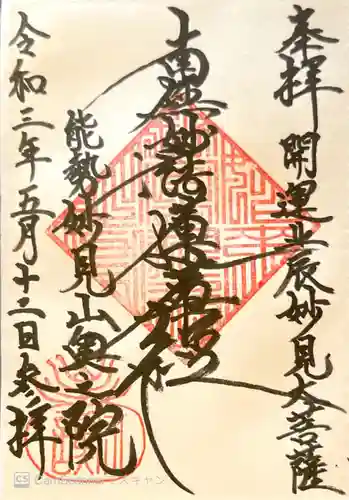 奉拝 開運北辰妙見大菩薩
南無妙法蓮華経
能勢妙見山奥之院
令和三年五月十二日参拝
CS CamScanner でスキャン